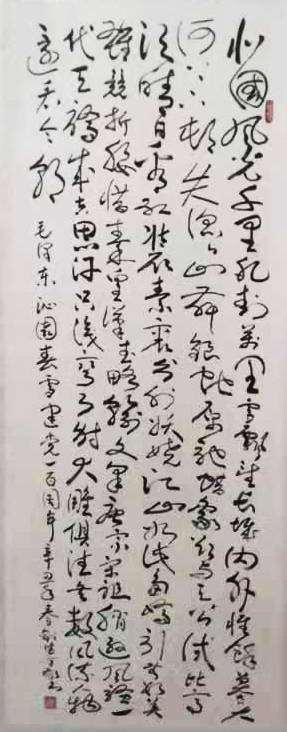 北国风光千里冰封万里雪飘望长城内外惟余莽莽大
河上下顿失滔滔山舞银蛇原驰蜡象欲与天公试比高
须晴日看红装素裹分外妖娆江山如此多娇引无数英
雄竞折腰惜秦皇汉武略输文采唐宗宋祖稍逊风骚一
代天骄成吉思汗只识弯弓射大雕俱往矣数风流人物
还看今朝
毛泽东沁园春雪建党一百周年辛丑年春